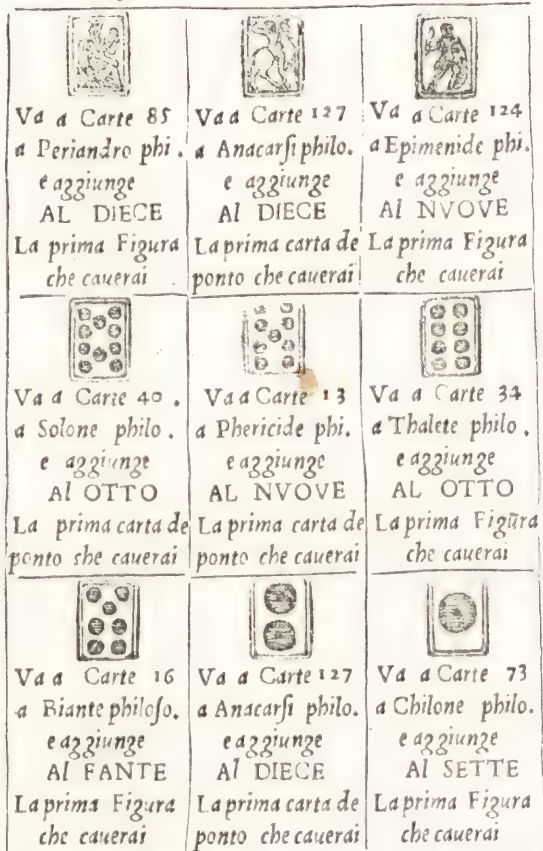 Va a Carte 85
a Periandro phi.
e aggiunge
AL DIECE
La prima Figura
che cauerai
Va a Carte 127
a Anacarsi philo.
e aggiunge
Al DIECE
La prima carta de
ponto che cauerai
Va a Carte 124
a Epimenide phi.
e aggiunge
Al NVOVE
La prima Figura
che cauerai
Va a Carte 40.
a Solone philo.
e aggiunge
Al OTTO
La prima carta de
ponto she cauerai
Va a Carte 13
a Phericide phi.
e aggiunge
AL NVOVE
La prima carta de
ponto che cauerai
Va a Carte 34
a Thalete philo.
e aggiunge
AL OTTO
La prima Figura
che cauerai
Va a Carte 16
a Biante philoso.
e aggiunge
Al FANTE
La prima Figura
che cauerai
Va a Carte 127
a Anacarsi philo.
e aggiunge
Al DIECE
La prima carta de
ponto che cauerai
Va a Carte 73
a Chilone philo.
e aggiunge
Al SETTE
La prima Figura
che cauerai